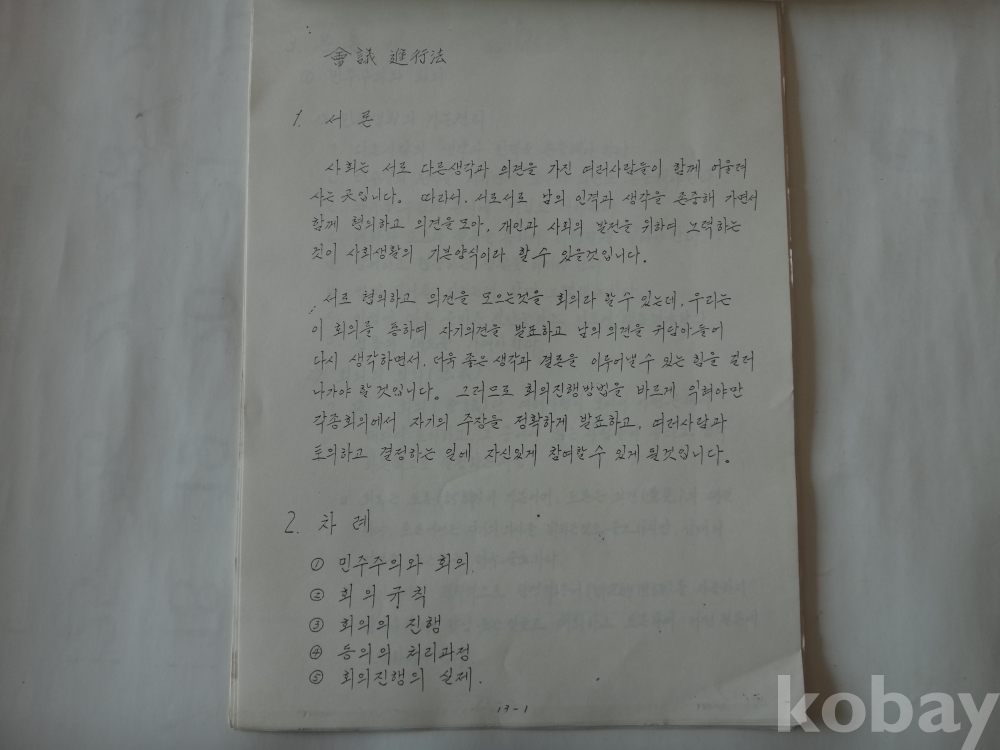 會議 進行法
1. 서론
사회는 서로 다른생각과 의견을 가진 여러사람들이 함께 어울려
사는 곳입니다. 따라서, 서로서로 남의 인격과 생각을 존중해 가면서
함께 협의하고 의견을 모아, 개인과 사회의 발전을 위하여 노력하는
것이 사회생활의 기본양식이라 할 수 있을것입니다.
서로 협의하고 의견을 모으는것을 회의라 할 수 있는데, 우리는
이 회의를 통하여 자기의견을 발표하고 남의 의견을 귀담아 들어
다시 생각하면서, 더욱 좋은 생각과 결론을 이루어낼 수 있는 힘을 길러
나가야 할 것입니다. 그러므로 회의진행방법을 바르게 익혀야만
각종회의에서 자기의 주장을 정확하게 발표하고, 여러사람과
토의하고 결정하는 일에 자신있게 참여할 수 있게 될것입니다.
2. 차례
① 민주주의와 회의.
② 회의규칙
③ 회의의 진행
④ 동의의 처리과정
⑤ 회의진행의 실제.
13-1
kobay